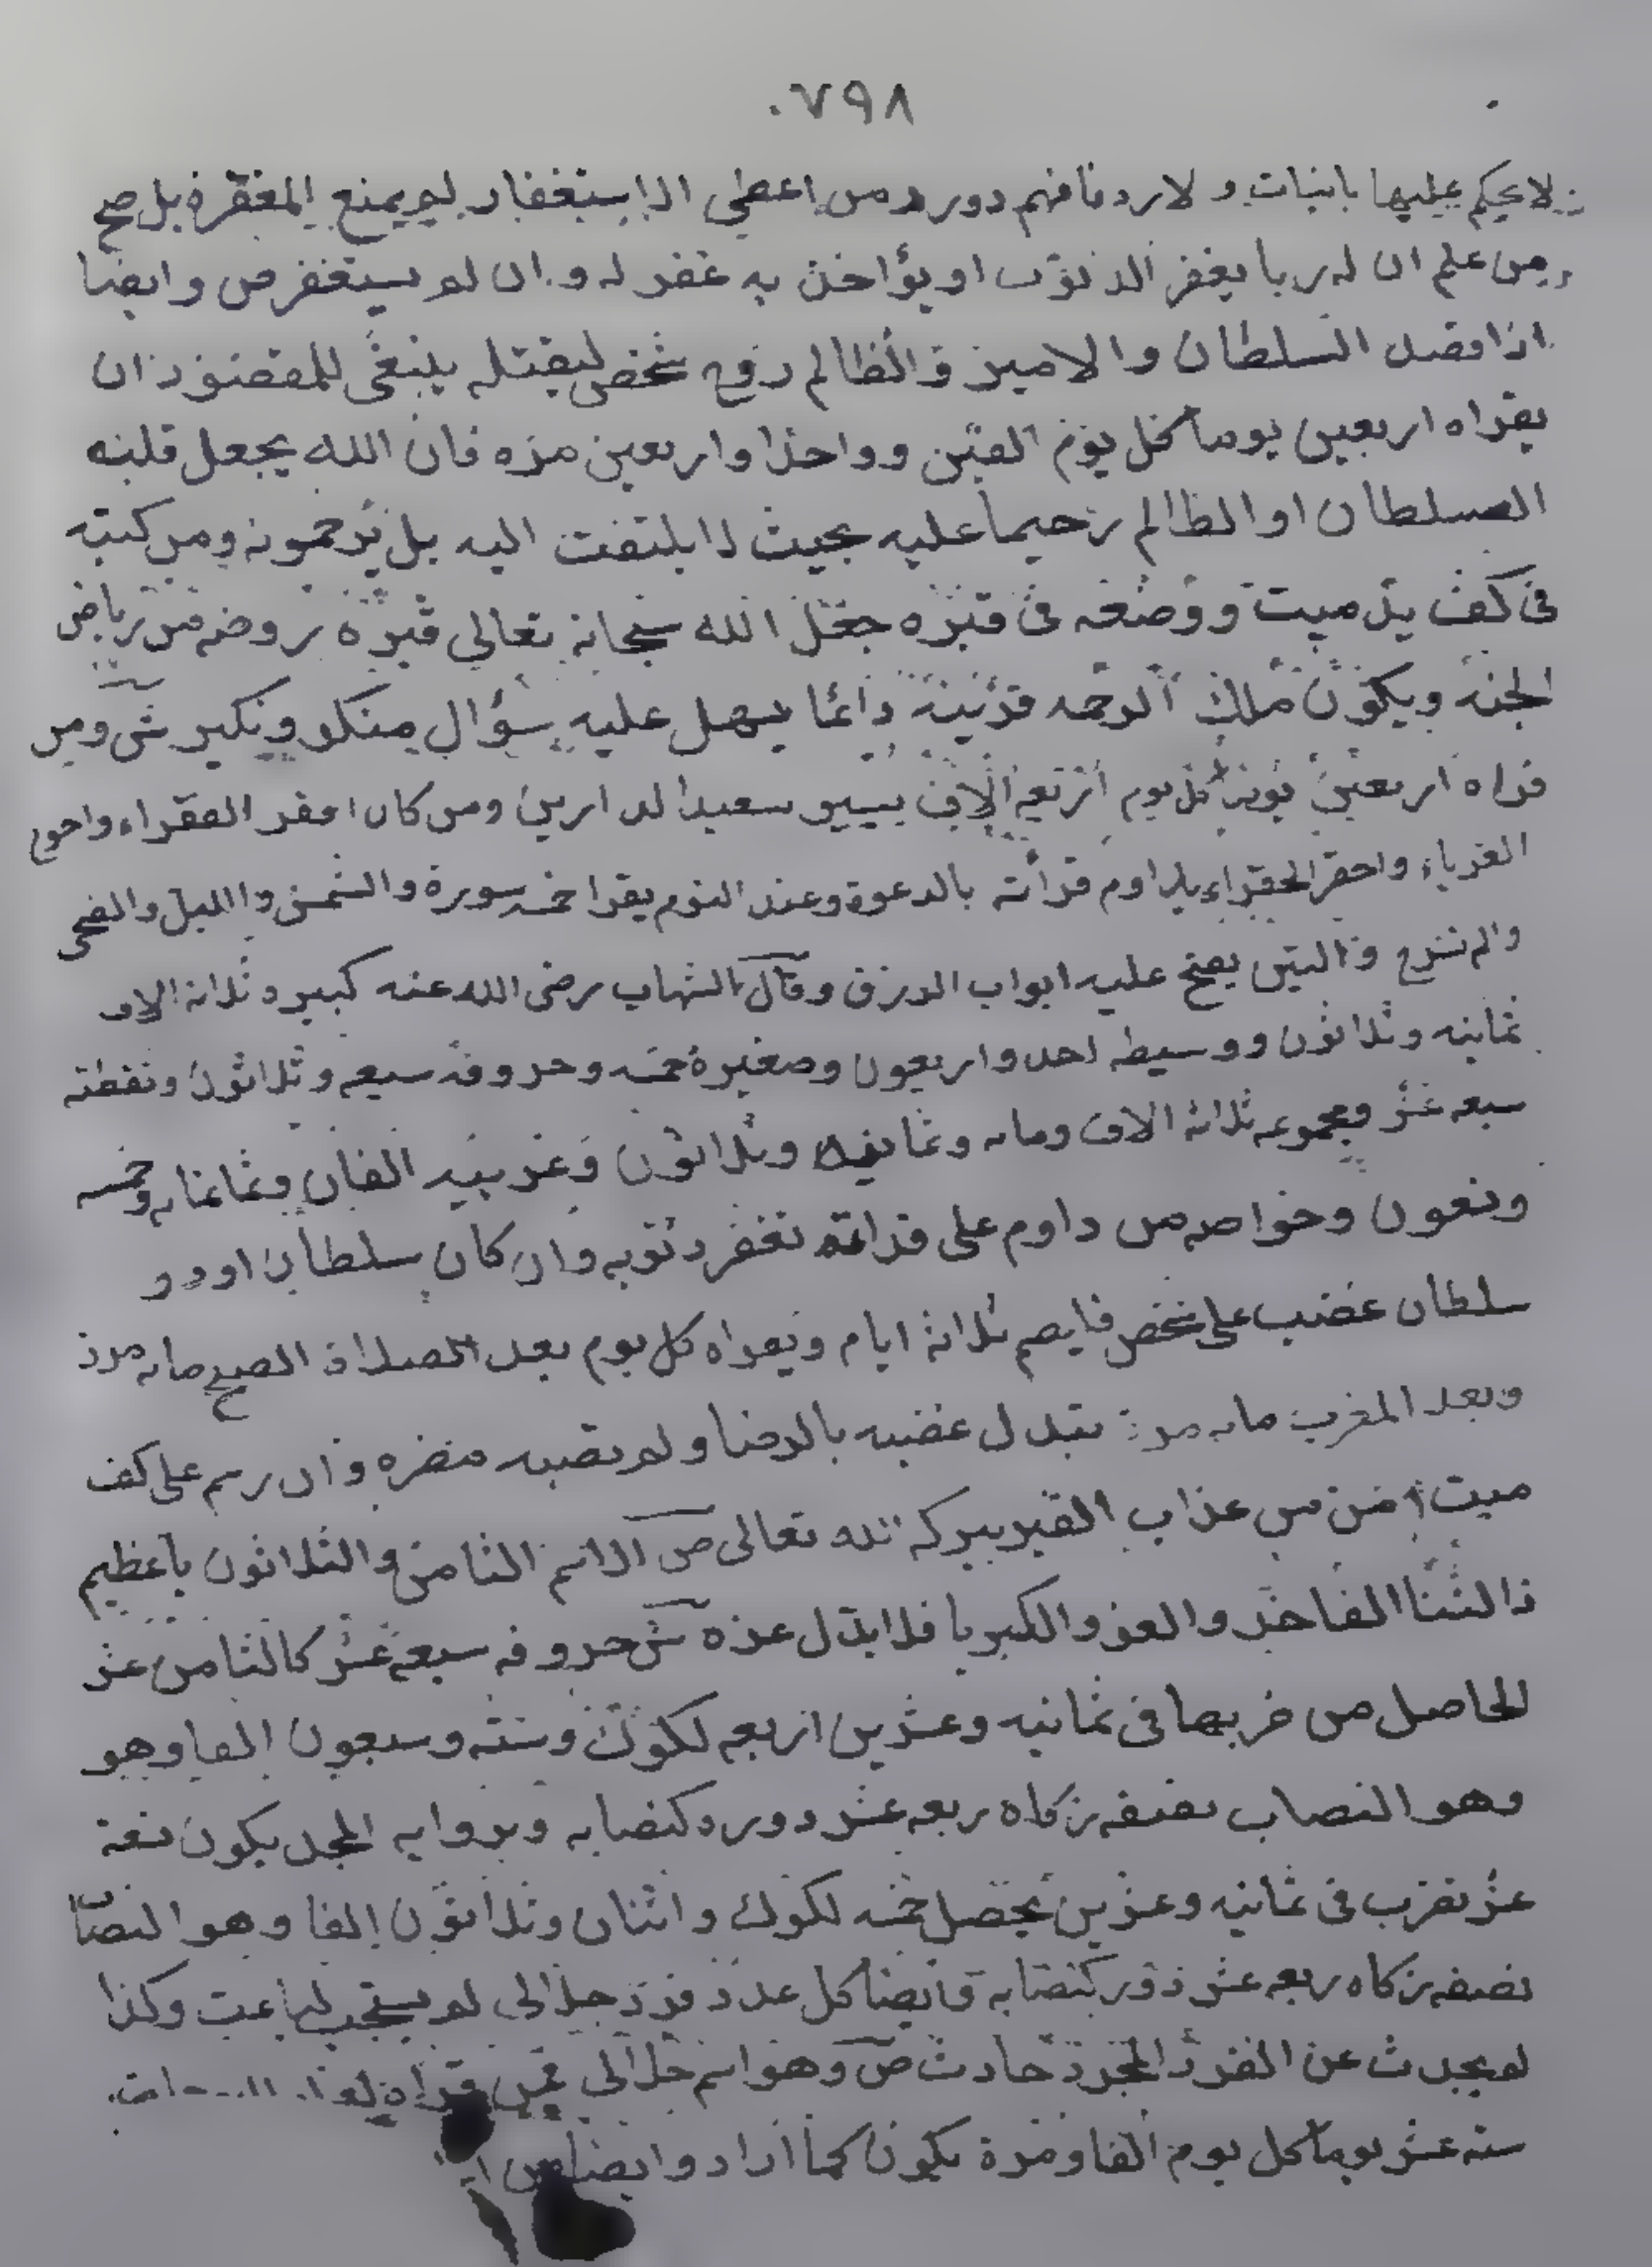 ٠٧٩٨
لا يحكم عليها باثبات و لا رد فافهم دورد من اعطي الاستغفار لم يمنع المغفرة بل صح
من علم ان له ربا يغفر الذنوب او يؤاخذ به غفر له و ان لم يستغفر ص وايضا
اذا قصد السلطان والامير والظالم روح شخص ليقتله ينبغي للمقصود ان
يقراه اربعين يوما كل يوم الفين وواحدا واربعين مره فان الله يجعل قلبه
السلطان او الظالم رحيما عليه بحيث لا يلتفت اليه بل يرحمونه ومن كتبه
في كف يد ميت ووضعه في قبره جعل الله سبحانه تعالى قبره روضه من رياض
الجنه ويكون ملك الرحمه قرينه دائما يسهل عليه سؤال منكر ونكير ش ومن
قراه اربعين يوما كل يوم اربعه الاف يسير سعيد الدارين ومن كان افقر الفقراء واحوج
الغرباء واحقر الحقراء يداوم قرأته بالدعوة وعند النوم يقرا خمسه سورة والشمس والليل والضحى
والم نشرح والتين يفتح عليه ابواب الرزق وقال الشهاب رضى الله عنه كبيره ثلاثة الاف
ثمانيه وثلاثون ووسيطه احد واربعون وصغيرة خمسه وحروفه سبعه وثلاثون ونقطته
سبعه عشر ومجموعه ثلاثه الاف ومايه وثمانيه وثلاثون وعزيبيه الفان وثمانمايه وخمسه
وتعون وخواصه من داوم على قراته تغفر ذنوبه وان كان سلطان او دو
سلطان غضب على شخص فايصم ثلاثة ايام ويقراه كل يوم بعد الصلاة الصبح مايه مرة
وبعد المغرب مايه مرة يتبدل غضبه بالرضا ولم تصبه مضره وان رسم على كف
ميت امن من عذاب القبر ببركه الله تعالى ص الاسم الثامن والثلاثون يا عظيم
ذا الثنا الفاخر والعز والكبريا فلا يذل عزه ش حروفه سبعه عشر كالثامن عشر
الحاصل من ضربها فى ثمانيه وعشرين اربعه لكوك وسته وسبعون الفا وهو
وهو النصاب نصفه زكاه ربعه عشر دورد كنصابه وبروايه المجد يكون تسعة
عشر تضرب فى ثمانيه وعشرين يحصل خمسه لكوك واثنان وثلاثون الفا وهو النصاب
نصفه زكاه ربعه عشر دور كنصابه وايضا كل عدد فرد جلالى لم يستجب لباعث وكذا
لم يحدث عن الفرد المجرد حادث ص وهو اسم جلالى فمن قراه
سته عشر يوما كل يوم الفا ومرة يكون كما اراد وايضا من